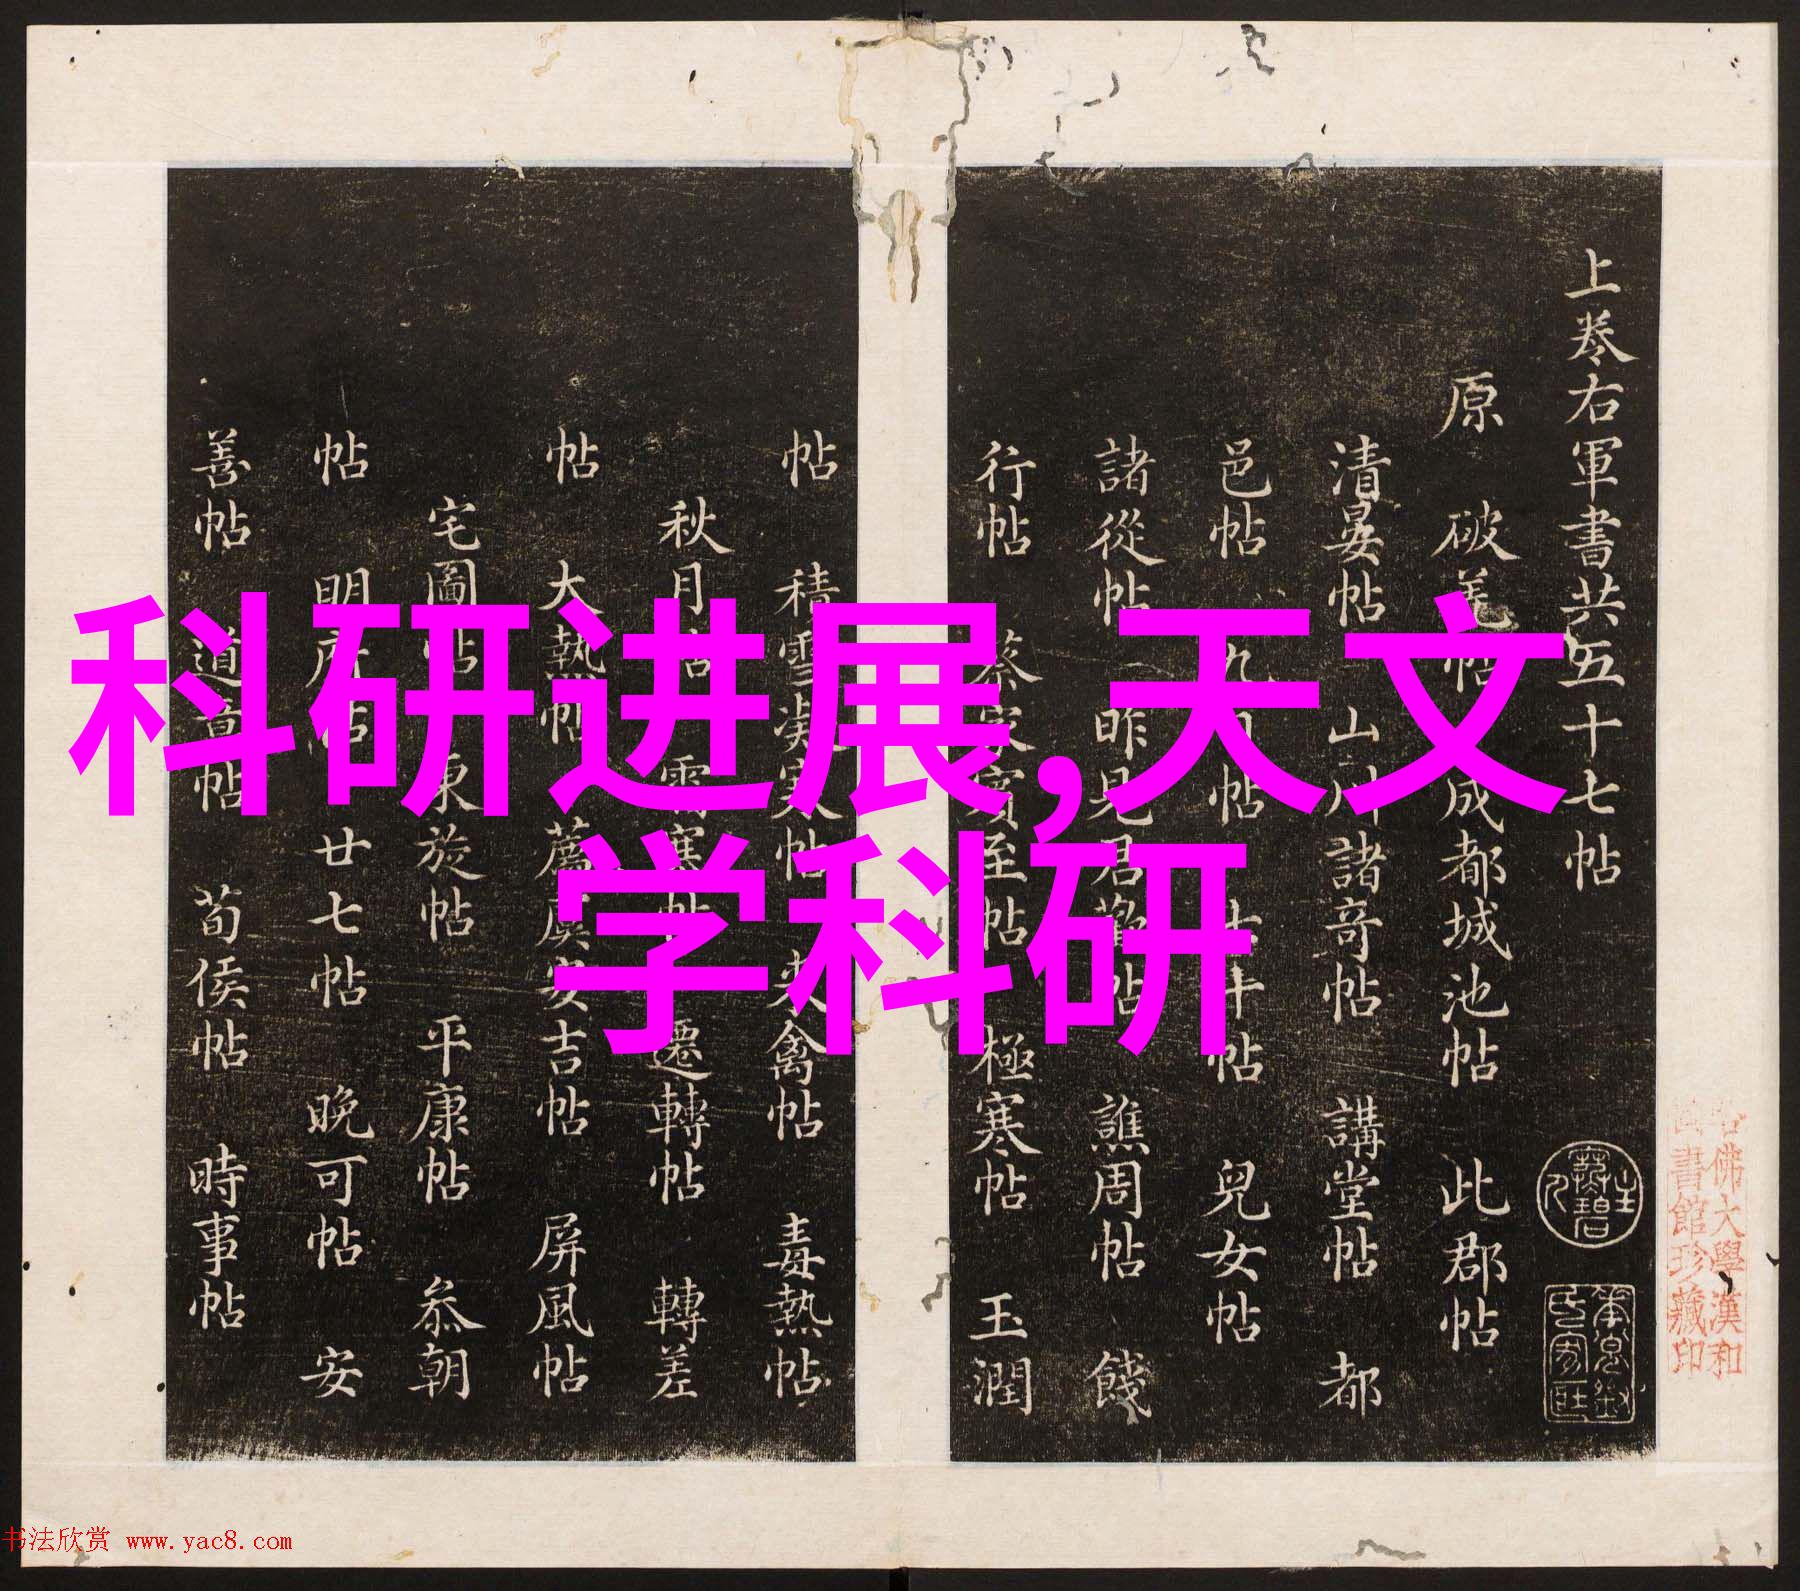 上卷右軍書共五十七帖
原 破羌帖 成都城池帖 此郡帖
清晏帖 山川諸奇帖 講堂帖 都
邑帖 七十帖 兒女帖
諸從帖 昨見君歡帖 譙周帖 餞
行帖 蔡家賓至帖 極寒帖 玉潤
帖 積雪凝寒帖 來禽帖 毒熱帖
秋月帖 雪寒帖 遷轉帖 轉差
帖 大熱帖 安吉帖 屏風帖
宅圖帖 東旋帖 平康帖 叅朝
帖 明府帖 廿七帖 晚可帖 安
善帖 道意帖 荀侯帖 時事帖
科研进展,天文
学科研
佛大學漢和
書館珍藏印
书法欣赏 www.yac8.com